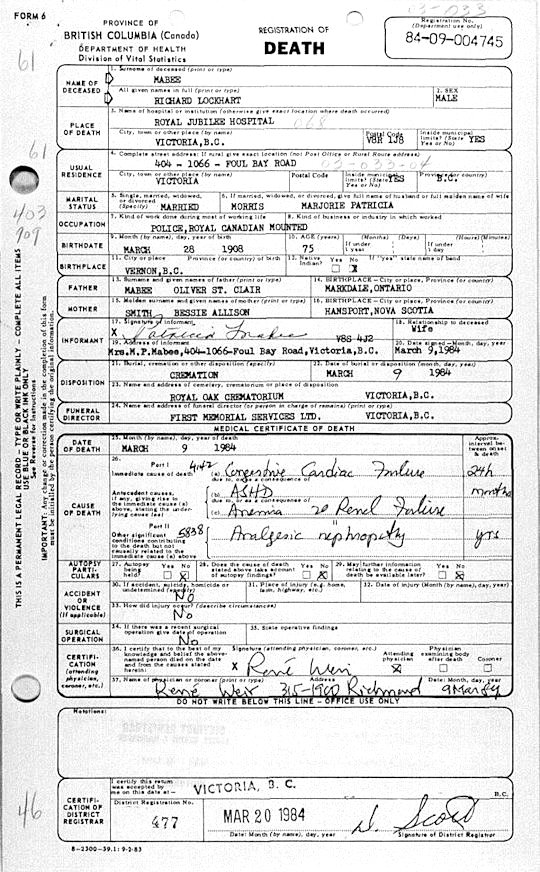 FORM 6
PROVINCE OF
BRITISH COLUMBIA (Canada)
DEPARTMENT OF HEALTH
Division of Vital Statistics
REGISTRATION OF
DEATH
13-033
Registration No.
(Department use only)
84-09-004745
61
NAME OF DECEASED
1. Surname of deceased (print or type)
MABEE
All given names in full (print or type)
RICHARD LOCKHART
2. SEX
MALE
PLACE OF DEATH
3. Name of hospital or institution (otherwise give exact location where death occurred)
ROYAL JUBILEE HOSPITAL
068
City, town or other place (by name)
VICTORIA,B.C.
Postal Code
V8R 1J8
Inside municipal limits? (State Yes or No)
YES
61
USUAL RESIDENCE
4. Complete street address: If rural give exact location (not Post Office or Rural Route address)
404 - 1066 - FOUL BAY ROAD
13-033-04
City, town or other place (by name)
VICTORIA
Postal Code
Inside municipal limits? (State Yes or No)
YES
Province (or country)
B.C.
403
709
MARITAL STATUS
5. Single, married, widowed, or divorced (Specify)
MARRIED
6. If married, widowed, or divorced, give full name of husband or full maiden name of wife
MORRIS MARJORIE PATRICIA
OCCUPATION
7. Kind of work done during most of working life
8. Kind of business or industry in which worked
POLICE,ROYAL CANADIAN MOUNTED
BIRTHDATE
9. Month (by name), day, year of birth
MARCH 28 1908
10. AGE (years)
75
(Months) (Days)
If under 1 year
(Hours) (Minutes)
If under 1 day
BIRTHPLACE
11. City or place Province (or country) of birth
VERNON,B.C.
12. Native Indian?
Yes No
X
If "yes" state name of band
FATHER
13. Surname and given names of father (print or type)
MABEE OLIVER ST. CLAIR
14. BIRTHPLACE - City or place, Province (or country)
MARKDALE,ONTARIO
MOTHER
15. Maiden surname and given names of mother (print or type)
SMITH BESSIE ALLISON
16. BIRTHPLACE - City or place, Province (or country)
HANSPORT,NOVA SCOTIA
INFORMANT
17. Signature of informant
X Patricia Mabee
18. Relationship to deceased
Wife
V8S 4J2
19. Address of informant
Mrs.M.P.Mabee,404-1066-Foul Bay Road,Victoria,B.C.
20. Date signed - Month, day, year
March 9,1984
DISPOSITION
21. Burial, cremation or other disposition (specify)
CREMATION
22. Date of burial or disposition (month, day, year)
MARCH 9 1984
23. Name and address of cemetery, crematorium or place of disposition
ROYAL OAK CREMATORIUM VICTORIA,B.C.
FUNERAL DIRECTOR
24. Name and address of funeral director (or person in charge of remains) (print or type)
FIRST MEMORIAL SERVICES LTD. VICTORIA,B.C.
MEDICAL CERTIFICATE OF DEATH
DATE OF DEATH
25. Month (by name), day, year of death
MARCH 9 1984
Approx. interval between onset & death
CAUSE OF DEATH
26.
Part I
Immediate cause of death
(a) Congestive Cardiac Failure
24h
due to, or as a consequence of
Antecedent causes, if any, giving rise to the immediate cause (a) above, stating the underlying cause last
(b) ASHD
months
due to, or as a consequence of
(c) Anemia 2o Renal Failure
Part II
Other significant conditions contributing to the death but not causally related to the immediate cause (a) above
5838
II
Analgesic nephropathy
yrs
AUTOPSY PARTICULARS
27. Autopsy being held?
Yes No
X
28. Does the cause of death stated above take account of autopsy findings?
Yes No
X
29. May further information relating to the cause of death be available later?
Yes No
X
ACCIDENT OR VIOLENCE
(If applicable)
30. If accident, suicide, homicide or undetermined (specify)
No
31. Place of injury (e.g. home, farm, highway, etc.)
32. Date of injury (Month (by name), day, year)
33. How did injury occur? (describe circumstances)
No
SURGICAL OPERATION
34. If there was a recent surgical operation give date of operation
No
35. State operative findings
CERTIFICATION
(attending physician, coroner, etc.)
36. I certify that to the best of my knowledge and belief the above-named person died on the date and from the causes stated herein:
Signature (attending physician, coroner, etc.)
X René Weir
Attending physician
X
Physician examining body after death
Coroner
37. Name of physician or coroner (print or type)
Address
Date: Month, day, year
René Weir 315-1900 Richmond 9 Mar 84
DO NOT WRITE BELOW THIS LINE - OFFICE USE ONLY
Notations:
46
CERTIFICATION OF DISTRICT REGISTRAR
I certify this return was accepted by me on this date at -
VICTORIA, B. C.
B.C.
District Registration No.
477
MAR 20 1984
Date: Month (by name), day, year
D. Scott
Signature of District Registrar
8-2300-39.1: 9-2-83
THIS IS A PERMANENT LEGAL RECORD - TYPE OR WRITE PLAINLY - COMPLETE ALL ITEMS
USE BLUE OR BLACK INK ONLY
See Reverse for Instructions
IMPORTANT: Any change or correction made in the completion of this form must be initialled by the person certifying the original information.